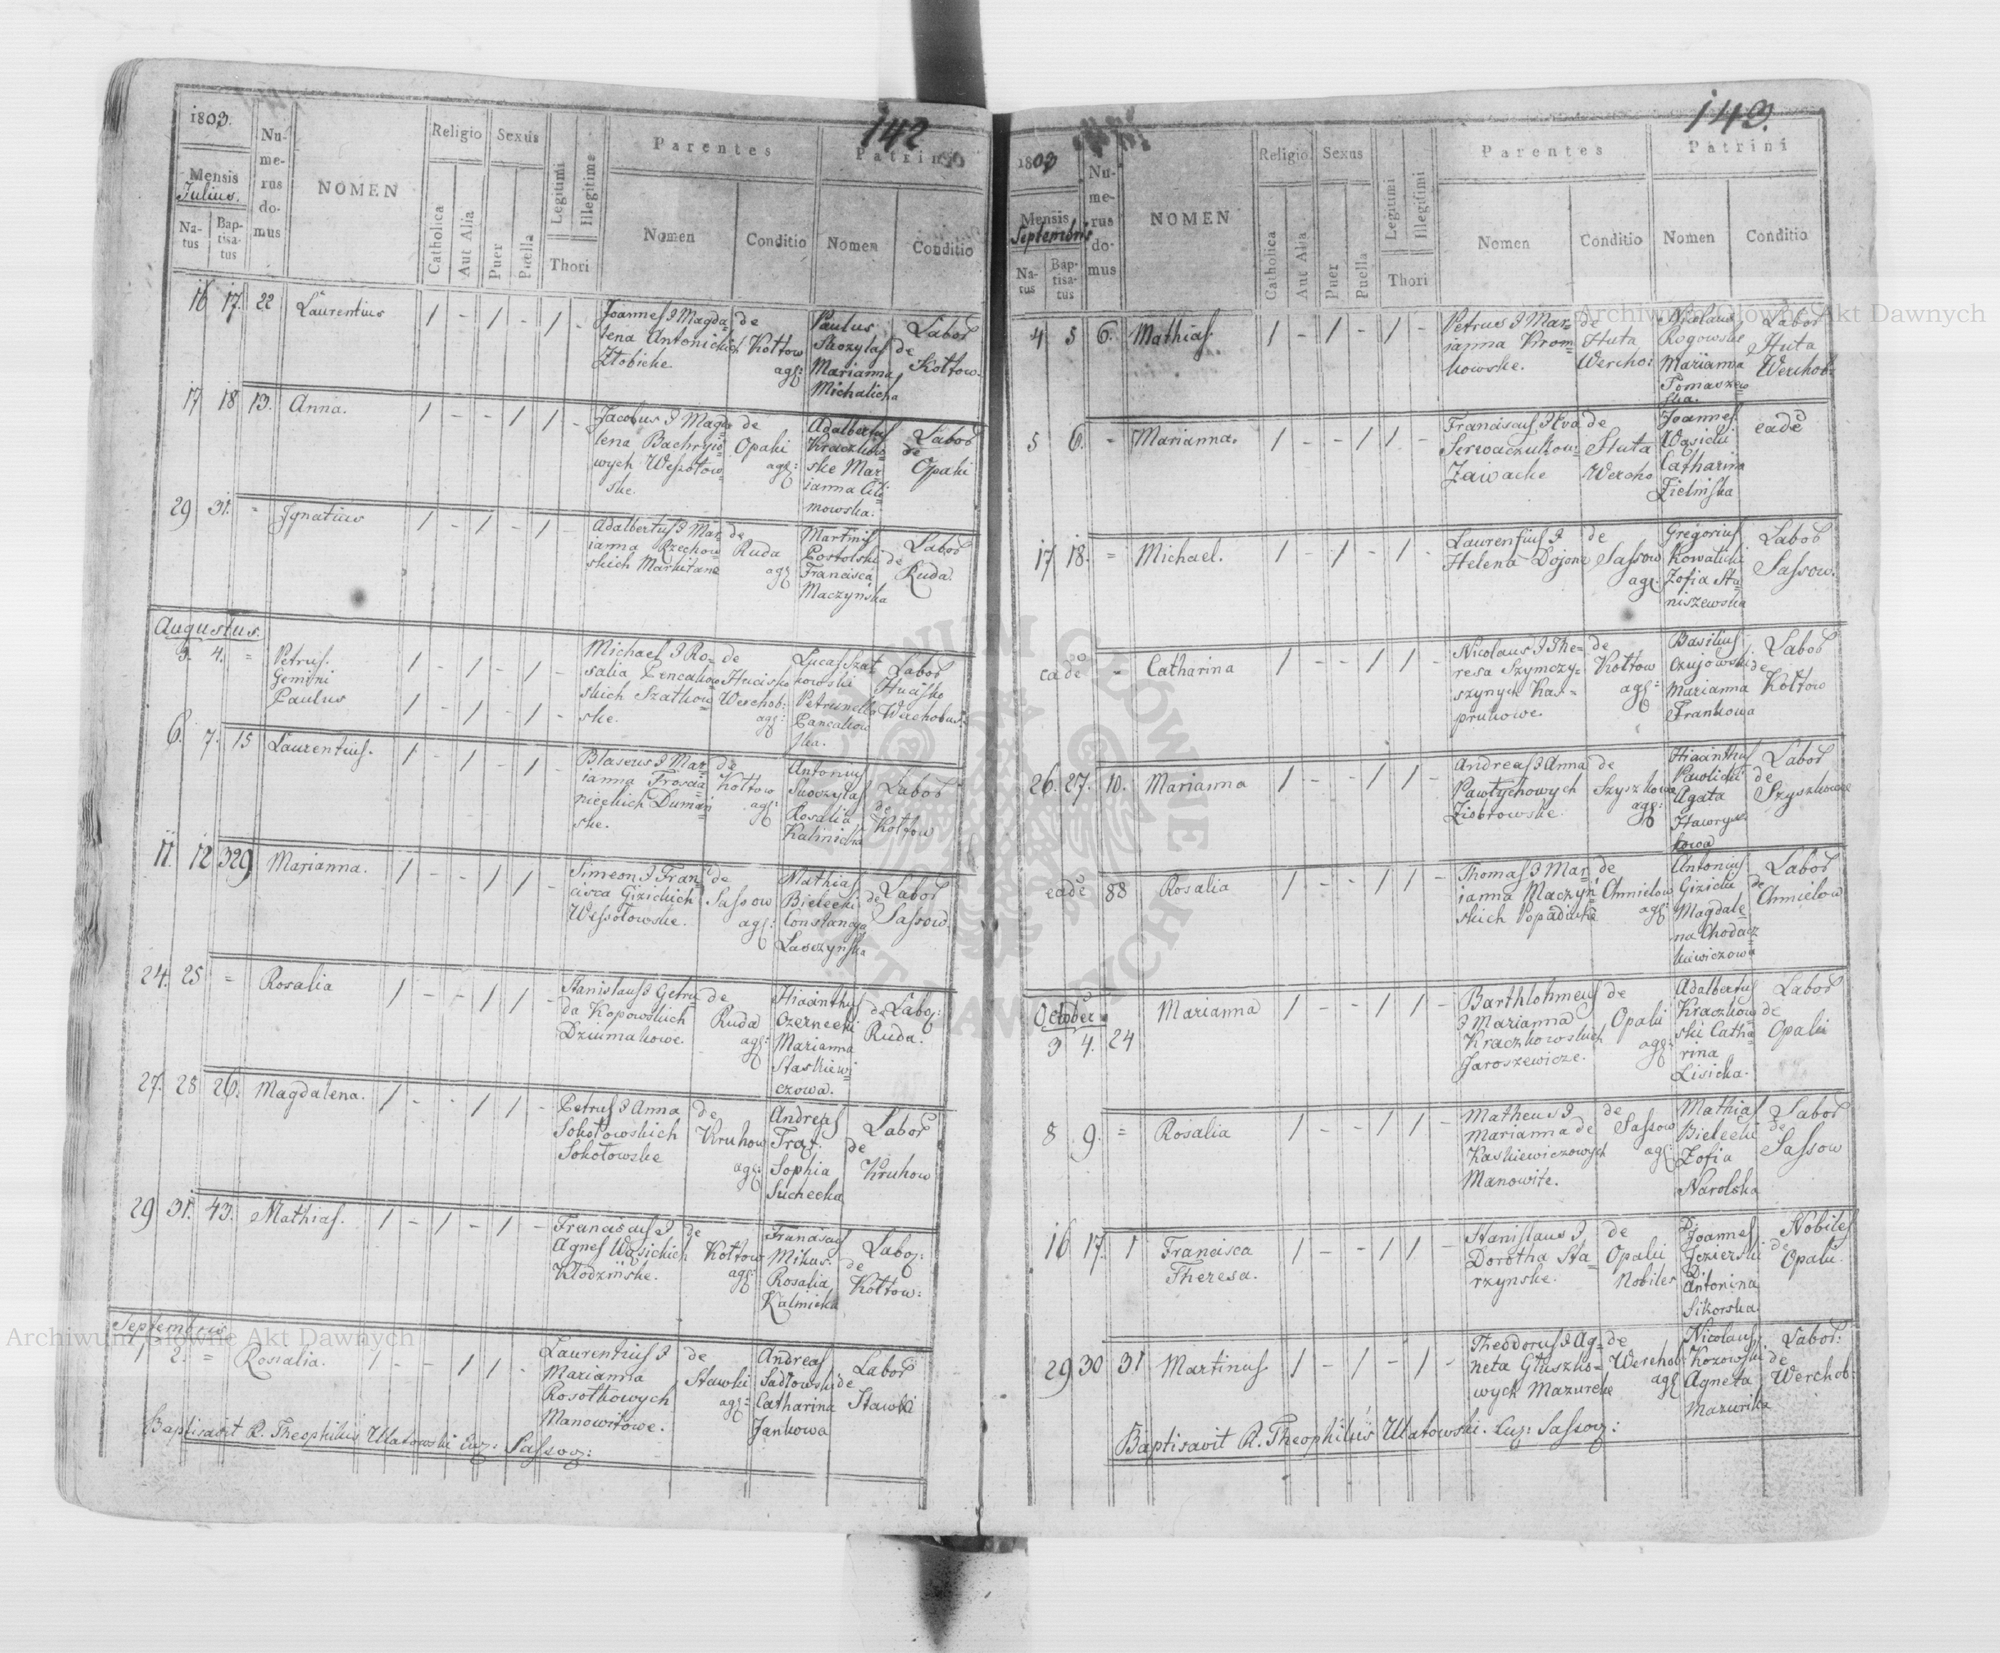 142
1803.
Mensis
Julius.
Na-
tus
Bap-
tisa-
tus
Nu-
me-
rus
do-
mus
NOMEN
Religio
Catholica
Aut Alia
Sexus
Puer
Puella
Legitimi
Illegitimi
Thori
Parentes
Nomen
Conditio
Patrini
Nomen
Conditio
16 17. 22 Laurentius 1 - 1 - 1 -
Joannes & Magda=
lena Antonickich
Złobicke.
de
Kołtow
agr:
Paulus
Skozylas
Marianna
Michalicha
Labor
de
Kołtow.
17 18 13. Anna. 1 - - 1 1 -
Jacobus & Magda
lena
wych Wessołow=
ske.
de
Opaki
agr:
Adalbertus
Kraczkow=
ske Mar
ianna Kli=
mowska.
Labor
de
Opaki
29 31. = Ignatius 1 - 1 - 1 -
Adalbertus & Mar=
ianna Rzechow=
skich Markitane
de
Ruda
agr
Martinus
Postolski
Francisca
Maczynska
Labor
de
Ruda.
Augustus.
3. 4. = Petrus.
Gemini
Paulus
1 - 1 - 1 -
1 - 1 - 1 -
Michael & Ro=
salia Pencakow
skich Szatkow=
ske.
de
Hucisko
Werchob:
agr:
Lucas Szat
kowski
Petrunella
Pancakow
ska.
Labor
Hucisko
Werchobus:
6. 7. 15 Laurentius. 1 - 1 - 1 -
Blaseus & Mar=
ianna Froscia=
nieckich Duman
ske.
de
Kołtow
agr:
Antonius
Skoczylas
Rosalia
Kalinicka
Labor
de
Kołtow
11. 12 329 Marianna. 1 - - 1 1 -
Simeon & Fran=
cisca Gizickich
Wessołowske.
de
Sassow
agr:
Mathias
Bielecki
Constancya
Lasczynska
Labor
de
Sassow.
24. 25 = Rosalia 1 - - 1 1 -
Stanislaus & Getru
da Kopowskich
Dziumakowe.
de
Ruda
agr:
Hiacinthus
Czernecki
Marianna
Staskiew=
czowa.
Labor:
de
Ruda.
27. 28 26. Magdalena. 1 - - 1 1 -
Petrus & Anna
Sokołowskich
Sokołowske
de
Kruhow
agr:
Andreas
Fraz
Sophia
Suchecka
Labor
de
Kruhow
29 31. 43. Mathias. 1 - 1 - 1 -
Franciscus &
Agnes Wąsickich
Kłodzinske.
de
Kołtow
agr:
Franciscus
Mikus:
Rosalia
Kalnicka
Labor:
de
Kołtow:
Septembris
1 2. = Rosalia. 1 - - 1 1 -
Laurentius &
Marianna
Rosołkowych
Manowitowe.
de
Stawki
agr:
Andreas
Sadłowski
Catharina
Jankowa
Labor
de
Stawki
Baptisavit R. Theophilus Ulatowski Sassov:
143.
1803
Mensis
Septembris
Na-
tus
Bap-
tisa-
tus
Nu-
me-
rus
do-
mus
NOMEN
Religio
Catholica
Aut Alia
Sexus
Puer
Puella
Legitimi
Illegitimi
Thori
Parentes
Nomen
Conditio
Patrini
Nomen
Conditio
4 5 6. Mathias 1 - 1 - 1 -
Petrus & Mar=
ianna Krom=
kowske.
de
Huta
Wercho:
Nicolaus
Rogowski
Marianna
Tomaszew
ska.
Labor
Huta
Werchob:
5 6. - Marianna. 1 - - 1 1 -
Franciscus & Eva
Serwaczukow:
Zaiwacke
de
Huta
Wercho
Joannes
Wąsicki
Catharina
Zielinska
eade
17 18. = Michael. 1 - 1 - 1 -
Laurentius &
Helena Dojone
de
Sassow
agr:
Gregorius
Kowalicki
Zofia Sta
niszewska
Labor
Sassow.
eade - Catharina 1 - - 1 1 -
Nicolaus & The=
resa Szymczy=
szynych Kas=
prukowe.
de
Kołtow
agr:
Basilius
Czujowski
Marianna
Frankowa
Labor
de
Kołtow
26. 27. 10. Marianna 1 - - 1 1 -
Andreas & Anna
Pawłychowych
Ziobrowske.
de
Szyszkowce
agr:
Hiacinthus
Pawlicki
Agata
Hawrysz
kowa
Labor
de
Szyszkowce
eade 88 Rosalia 1 - - 1 1 -
Thomas & Mar=
ianna Maczyn
skich Popadiuke
de
Chmielow
agr:
Antonius
Gizicki
Magdale=
na Chodacz
kiewiczowa
Labor
de
Chmielow
October
3 4. 24 Marianna 1 - - 1 1 -
Barthlohmeus
& Marianna
Kraczkowskich
Jaroszewicze.
de
Opaki
agr:
Adalbertus
Kraczkow
ski Catha=
rina
Lisicka.
Labor
de
Opaki
8 9. = Rosalia 1 - - 1 1 -
Matheus &
Marianna de
Kaskiewiczowych
Manowite.
de
Sassow
agr:
Mathias
Bielecki
Zofia
Narolska
Labor
de
Sassow
16 17. 1 Francisca
Theresa.
1 - - 1 1 -
Stanislaus &
Dorotha Sta=
rzynske.
de
Opaki
Nobiles
D
Joannes
Jezierski
D.
Antonina
Sikorska.
Nobiles
de
Opaki.
29 30 31 Martinus 1 - 1 - 1 -
Theodorus & Ag=
neta Głuszko=
wych Mazureke
de
Werchob:
agr
Nicolaus
Kozowski
Agneta
Mazurika
Labor:
de
Werchob:
Baptisavit R. Theophilus Ulatowski. Sassov:
Archiwum Główne Akt Dawnych
Archiwum Główne Akt Dawnych
ARCHIWUM GŁÓWNE AKT DAWNYCH